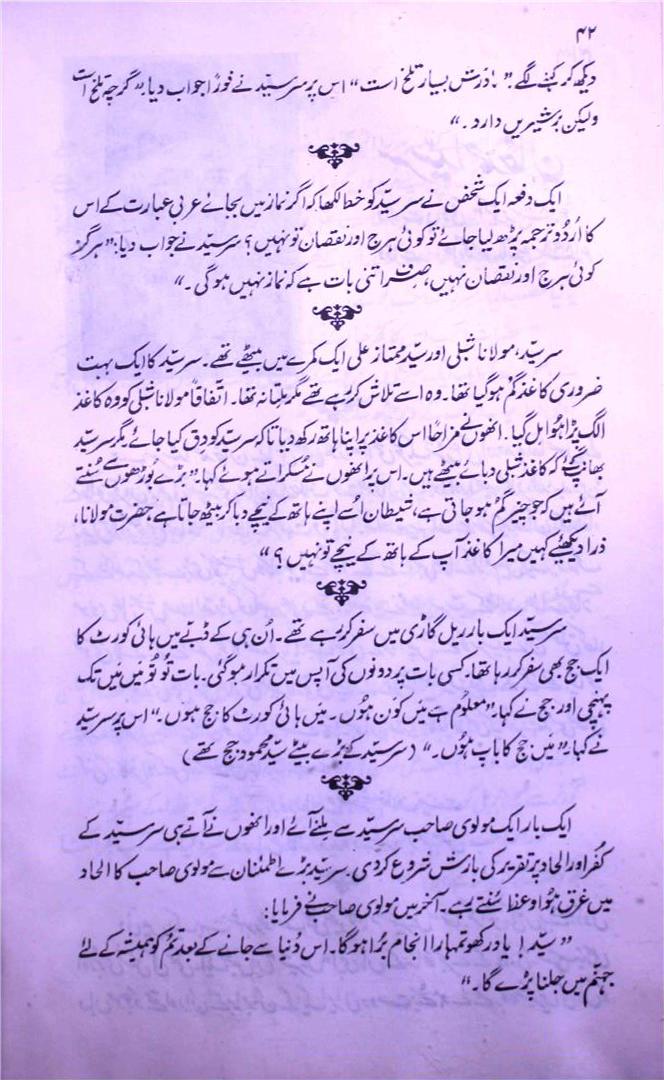 ۴۲
دیکھ کر کہنے لگے۔ "ذرش بسیار تلخ است" اس پر سرسیّد نے فوراً جواب دیا "گرچہ تلخ است
ولیکن برشیریں دارد۔"
ایک دفعہ ایک شخص نے سرسیّد کو خط لکھا کہ اگر نماز میں بجائے عربی عبارت کے اس
کا اُردُو ترجمہ پڑھ لیا جائے تو کوئی ہرج اور نقصان تو نہیں؟ سرسیّد نے جواب دیا: "ہرگز
کوئی ہرج اور نقصان نہیں، صرف اتنی بات ہے کہ نماز نہیں ہوگی۔"
سرسیّد، مولانا شبلی اور سیّد ممتاز علی ایک کمرے میں بیٹھے تھے۔ سرسیّد کا ایک بہت
ضروری کاغذ گُم ہوگیا تھا۔ وہ اسے تلاش کر رہے تھے مگر ملتا نہ تھا۔ اتفاقاً مولانا شبلی کو وہ کاغذ
الگ پڑا ہُوا مل گیا۔ انھوں نے مزاحاً اس کاغذ پر اپنا ہاتھ رکھ دیا تاکہ سرسیّد کو دق کیا جائے مگر سرسیّد
بھانپ گئے کہ کاغذ شبلی دبائے بیٹھے ہیں۔ اس پر انھوں نے مُسکراتے ہوئے کہا۔ "بڑے بُوڑھوں سے سُنتے
آئے ہیں کہ جو چیز گُم ہو جاتی ہے، شیطان اُسے اپنے ہاتھ کے نیچے دبا کر بیٹھ جاتا ہے حضرت مولانا،
ذرا دیکھئے کہیں میرا کاغذ آپ کے ہاتھ کے نیچے تو نہیں؟"
سرسیّد ایک بار ریل گاڑی میں سفر کر رہے تھے۔ اُن ہی کے ڈبّے میں ہائی کورٹ کا
ایک جج بھی سفر کر رہا تھا۔ کسی بات پر دونوں کی آپس میں تکرار ہوگئی۔ بات تُو تُو مَیں مَیں تک
پہنچی اور جج نے کہا۔ "معلُوم ہے مَیں کون ہُوں۔ مَیں ہائی کورٹ کا جج ہوں۔" اس پر سرسیّد
نے کہا۔ "مَیں جج کا باپ ہُوں۔" (سرسیّد کے بڑے بیٹے سیّد محمود جج تھے)
ایک بار ایک مولوی صاحب سرسیّد سے ملنے آئے اور انھوں نے آتے ہی سرسیّد کے
کُفر اور الحاد پر تقریر کی بارش شروع کردی۔ سرسیّد بڑے اطمنان سے مولوی صاحب کا الحاد
میں غرق ہُوا وعظ سُنتے رہے۔ آخر میں مولوی صاحب نے فرمایا:
"سیّد! یاد رکھو تمہارا انجام بُرا ہوگا۔ اس دُنیا سے جانے کے بعد تم کو ہمیشہ کے لئے
جہنم میں جلنا پڑے گا۔"